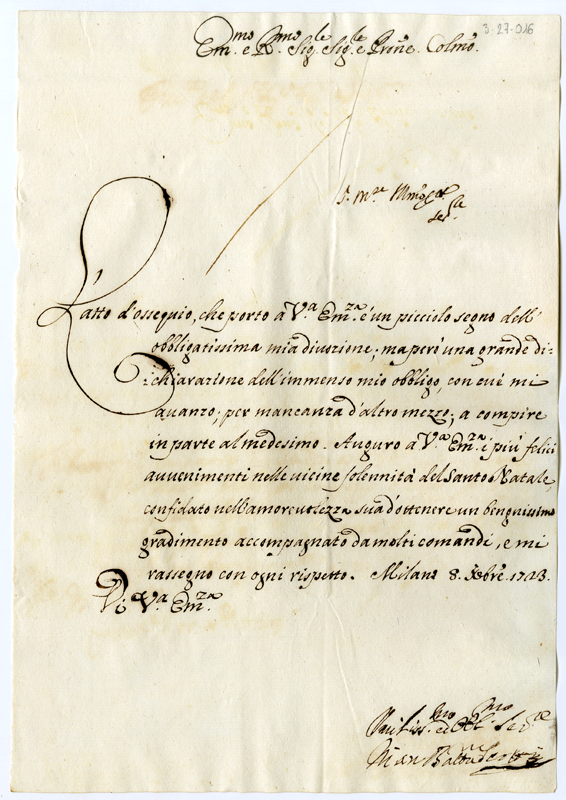 3-27-016
Em.mo e R.mo Sig.le Sig.le e Prñe. Colmo.
L'atto d'ossequio, che porto à V.a Em.za è un picciolo segno dell'
obbligatissima mia divozione; ma per è una grande di=
=chiarazione dell'immenso mio obbligo, con cui mi
avanzo, per mancanza d'altro mezzo, a compire
in parte al medesimo. Auguro a V.a Em.za i più felici
avvenimenti nelle vicine solennità del Santo Natale,
confidato nell'amorevolezza sua d'ottenere un benignissimo
gradimento accompagnato da molti comandi, e mi
rassegno con ogni rispetto. Milano 8. Xbre. 1723.
Di V.a Em.za
Gian Batta